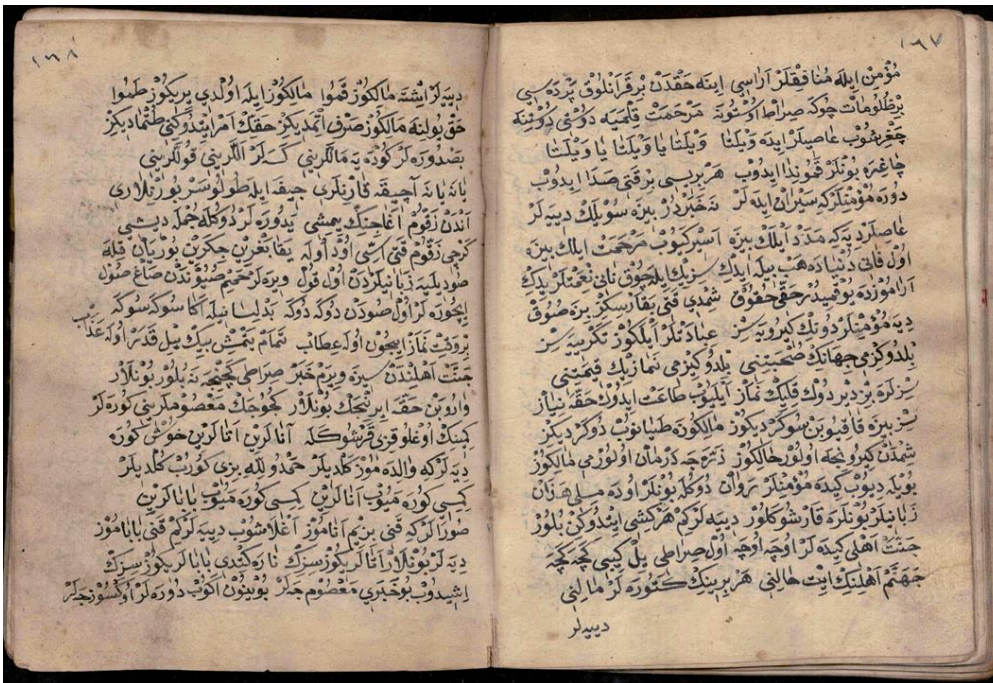 ١٦٧
مُؤْمِنْ اِيلَه مُنَافِقْلَرْ آرَاسِي اِينَه حَقْدَنْ بِرْ قَرَانْلُوقْ پَرْدَه سِي
بِرْ ظُلُومَاتْ چُوكَه صِرَاطْ اُوسْتُونَه مَرْحَمَتْ قَلْمَيَه دُوسْتِي دُوسْتِنَه
چَغْرِشُوبْ عَاصِيلَرْ اِيدَه وَيْلَتَا وَيْلَتَا يَا وَيْلَتَا يَا وَيْلَتَا
چَاغِرَه بُونْلَرْ قَتُو نِدَا اِيدُوبْ هَرْ بِرِيسِي بِرْ قَتِي صَدَا اِيدُوبْ
دُورَه مُؤْمِنْلَرْ كِه سَيْرَانْ اِيلَه لَرْ نَه خَبَرْدُرْ بِيزَه سُويْلَكْ دِييَه لَرْ
عَاصِيلَرْ دِيَه كِه مَدَدْ اَيْلَكْ بِيزَه اَسِيرْكَيُوبْ مَرْحَمَتْ اَيْلَكْ بِيزَه
اُولْ فَانِي دُنْيَادَه هَپْ بِيلَه اِيدِكْ سِزِيكْ اِيلَه چُوقْ نَانِ نِعْمَتْلَرْ يِدِكْ
آرَامُوزْدَه يُوقْمِيدُرْ حَقِّ حُقُوقْ شِمْدِي قَتِي بَقَارْسِكِزْ بِزَه صُوُقْ
دِيَه مُؤْمِنْلَرْ دُونِكْ كِيرُويَه سِزْ عِبَادَتْلَرْ اَيْلَكُوزْ تَكْرِييَه سِزْ
بِلْدُوكِزْمِي جِهَانِكْ صُحْبَتِنِي بِلْدُوكِزْمِي نَمَازِيكْ قِيمَتِنِي
سِزْلَرَه بِزْ دِيرْدُوكْ قِلِيكْ نَمَازْ اَيْلَيُوبْ طَاعَتْ اِيدُوكْ حَقَّه نِيَازْ
سِزْ بِيزَه قَاقِيُوبَنْ سُوكَرْدِيكُوزْ مَالِكُوزَه طَيَانُوبْ دُوكَرْدِيكِزْ
شِمْدَنْ كِيرُو نِجَه اُولُورْ حَالِكُوزْ ذَرَّه جَه دَرْمَانْ اُولُورْمِي مَالِكُوزْ
بُويْلَه دِيُوبْ كِيدَه مُؤْمِنْلَرْ رَوَانْ دُوكَلِه بُونْلَرْ اُودَه
زَبَانِيلَرْ بُونْلَرَه قَارْشُو كَلُورْ دِييَه لَرْ كِمْ هَرْ كِشِي اِيتْدُوكِنْ بُلُورْ
جَنَّتْ اَهْلِي كِيدَه لَرْ اُوچَه اُوچَه اُولْ صِرَاطِي يَلْ كِيبِي كَچَه كَچَه
جَهَنَّمْ اَهْلِنِكْ اِيتْ حَالِنِي هَرْ بِرِينِكْ كَتُورَه لَرْ مَالِنِي
دييه لر
١٦٨
دِييَه لَرْ اِشْتَه مَالِكُوزْ قَمُوا مَالِكُوزْ اِيلَه اُولْدِي يِرِيكُوزْ طَمُوا
حَقّ يُولِنَه مَالِكُوزْ صَرْفْ اِتْمَدِيكِزْ حَقِّكْ اَمْرْ اِيتْدُوكِنِي طُتْمَادِيكِزْ
بَصْدُورَه لَرْ كُودَه يَه مَالْلَرِينِي كَسَه لَرْ اَللَّرِينِي قُولْلَرِينِي
يَانَه يَانَه آچِيقَه قَارِنْلَرِي جِيفَه اِيلَه طُولُوسَرْ بُورُنْلَارِي
آنْدَنْ زَقُّومْ آغَاجِنِكْ يِمِشِي يِدُورَه لَرْ دُوكُلَه جُمْلَه دِيشِي
كَرْچِي زَقُّومْ قَتِي اِسِّي اُودْ اُولَه يَقَا بَغْرِينْ جِكَرِينْ بُورْيَانْ قِلَه
صُو دِيلَيَه زَبَانِيلَرْدَنْ اُولْ قُولْ وِيرَه لَرْ حَمِيمْ صُيُونْدَنْ صَاغْ صُولْ
اِيچُورَه لَرْ اُولْ صُودَنْ دُوكَه دُوكَه بَدْلِسَانِيلَه آكَا سُوكَه سُوكَه
بِرْ وَقْتِ نَمَازْ اِيچُونْ اُولَه عِطَابْ تَمَامْ يَتْمِشْ بِيكْ يِيلْ قَدَرْ اُولَه عَذَابْ
جَنَّتْ اَهْلِنْدَنْ سِيزَه وِيرَمْ خَبَرْ صِرَاطِي كَچِنْجَه نَه بُلُورْ بُونْلَارْ
وَارُوبَنْ حَقَّه اِيرِيجَكْ بُونْلَارْ كُچُوجَكْ مَعْصُومْلَرِينِي كُورَه لَرْ
كِيمِنِكْ اُوغْلُو قِزِي قَرْشُو كَلَه آتَالَرِينْ آنَالَرِينْ خُوشْ كُورَه
دِييَه لَرْ كِه وَالِدَه مُوزْ كَلْدِيلَرْ حَمْدُ لِلّٰهِ بِزِي كُورُبْ كُلْدِيلَرْ
كِيسِي كُورَه مَيُوبْ آنَالَرِينْ كِيسِي كُورَه مَيُوبْ بَابَالَرِينْ
صُورَالَرْ كِه قَنِي بِزِيمْ آنَامُوزْ آغْلَاشُوبْ دِييَه لَرْ كِمْ قَنِي بَابَامُوزْ
دِييَه لَرْ بُونْلَارْ آنَالَرِيكُوزْ سِزِكْ نَارَه كِتْدِي بَابَالَرِيكُوزْ سِزِكْ
اِشِيدُوبْ بُو خَبَرِي مَعْصُومْ جَه لَرْ بُويْنُونْ اَكُوبْ دُورَه لَرْ اُوكْسُوزْجَه لَرْ